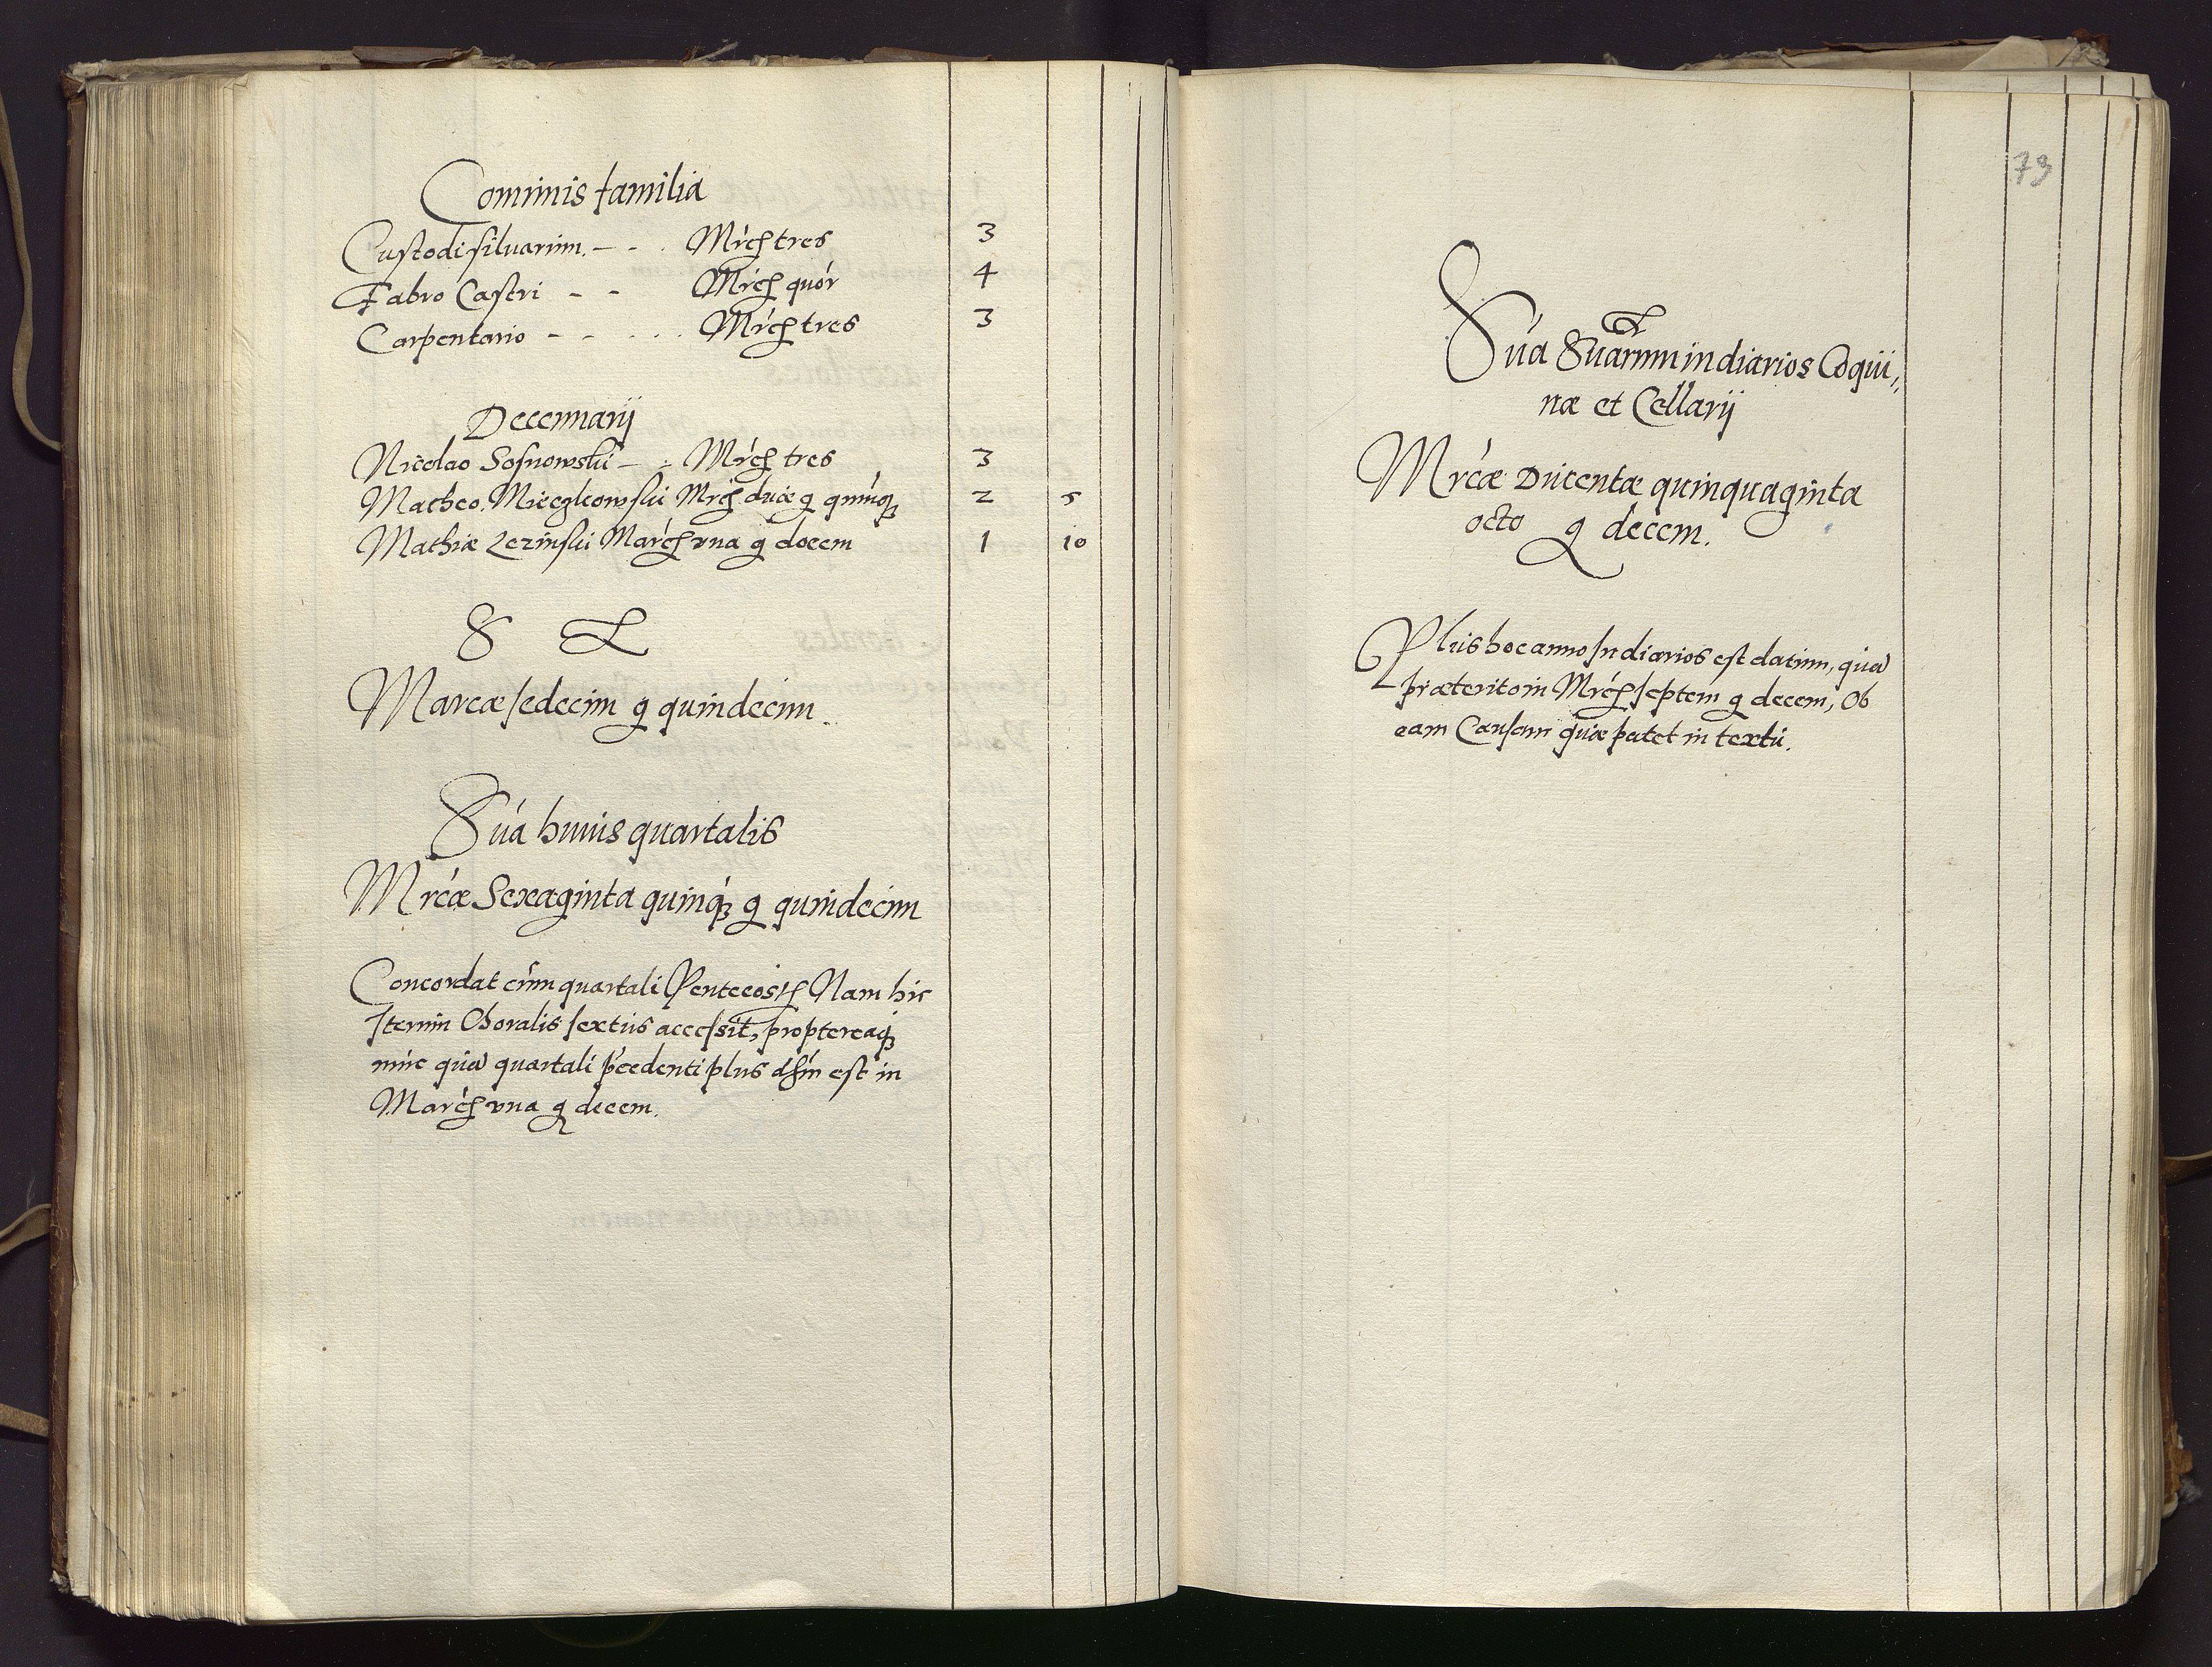 Com̄unis familia
Custodi siluarum. – – . Mr̄cę tres 3
Fabro Castri – – Mr̄cę quór 4
Carpentario – – . . . Mr̄cę tres 3
Decennarij
Nicolao Sosnowski – – Mr̄cę tres 3
Matheo Mieczkowski Mr̄cę duæ g quinq̨ 2 5
Mathiæ Lezinski Marcę vna g decem 1 10
S
Marcæ sedecim g quindecim
Súa huius quartalis
Mrcæ Sexaginta quinq̨ g quindecim
Concordat cum quartali Pentecosę Nam hic
Iterum Choralis sextus accessit, proptereaq̨
nunc quā quartali p̄cedenti plus dm̄ est in
Marcę vna g decem.
73
Súa Suārum in diarios Coqui,,
næ et Cellarij
Mrcæ Ducentæ quinquaginta
octo g decem.
Plus hoc anno In diarios est datum, quā
præterito in Mrcę septem g decem, Ob
eam Causam quæ patet in textu.